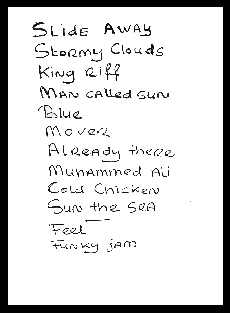 SLIDE AWAY
Stormy Clouds
King Riff
MAN CALLED SUN
Blue
Mover
Already there
Muhammed Ali
Cold Chicken
Sun the SEA
Feel
Funky jam